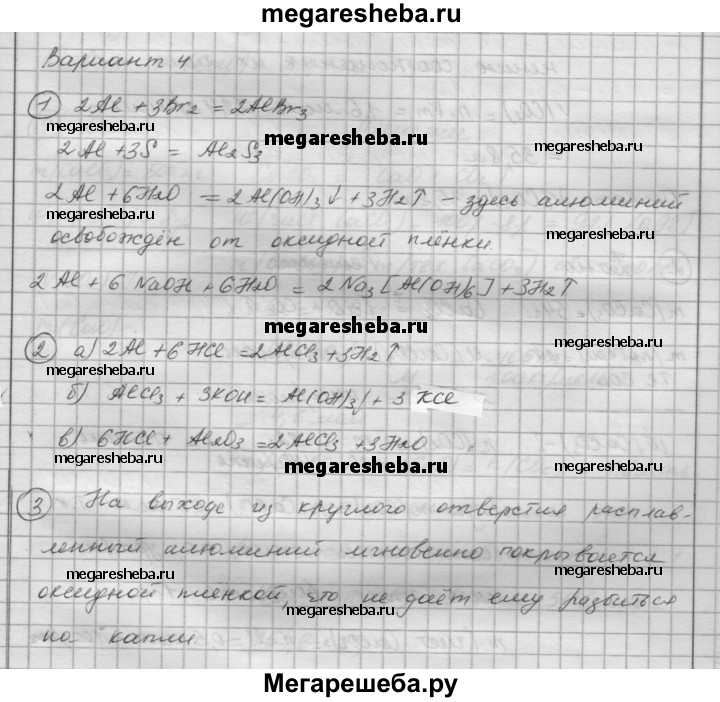 megaresheba.ru
Вариант 4
1 2Al + 3Br2 = 2AlBr3
megaresheba.ru megaresheba.ru
megaresheba.ru
2Al + 3S = Al2S3
2Al + 6H2O = 2Al(OH)3↓ + 3H2↑ - здесь алюминий
megaresheba.ru megaresheba.ru
освобождён от оксидной плёнки.
2Al + 6NaOH + 6H2O = 2Na3[Al(OH)6] + 3H2↑
megaresheba.ru
2 а) 2Al + 6HCl = 2AlCl3 + 3H2↑
megaresheba.ru megaresheba.ru
б) AlCl3 + 3KOH = Al(OH)3↓ + 3 KCl
в) 6HCl + Al2O3 = 2AlCl3 + 3H2O
megaresheba.ru megaresheba.ru
megaresheba.ru
3 На выходе из круглого отверстия расплав-
ленный алюминий мгновенно покрывается
megaresheba.ru megaresheba.ru
оксидной плёнкой, что не даёт ему разбиться
megaresheba.ru
на капли
Мегарешеба.ру